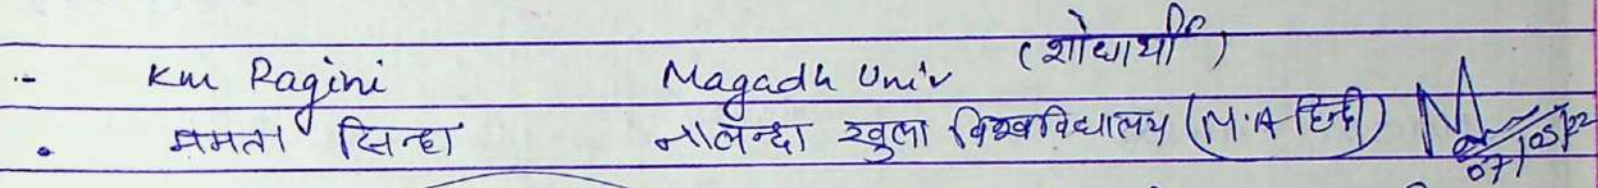 Km Ragini Magadh Univ (शोधार्थी)
ममता सिन्हा नालन्दा खुला विश्वविधालय (M.A हिन्दी) 07/05/22